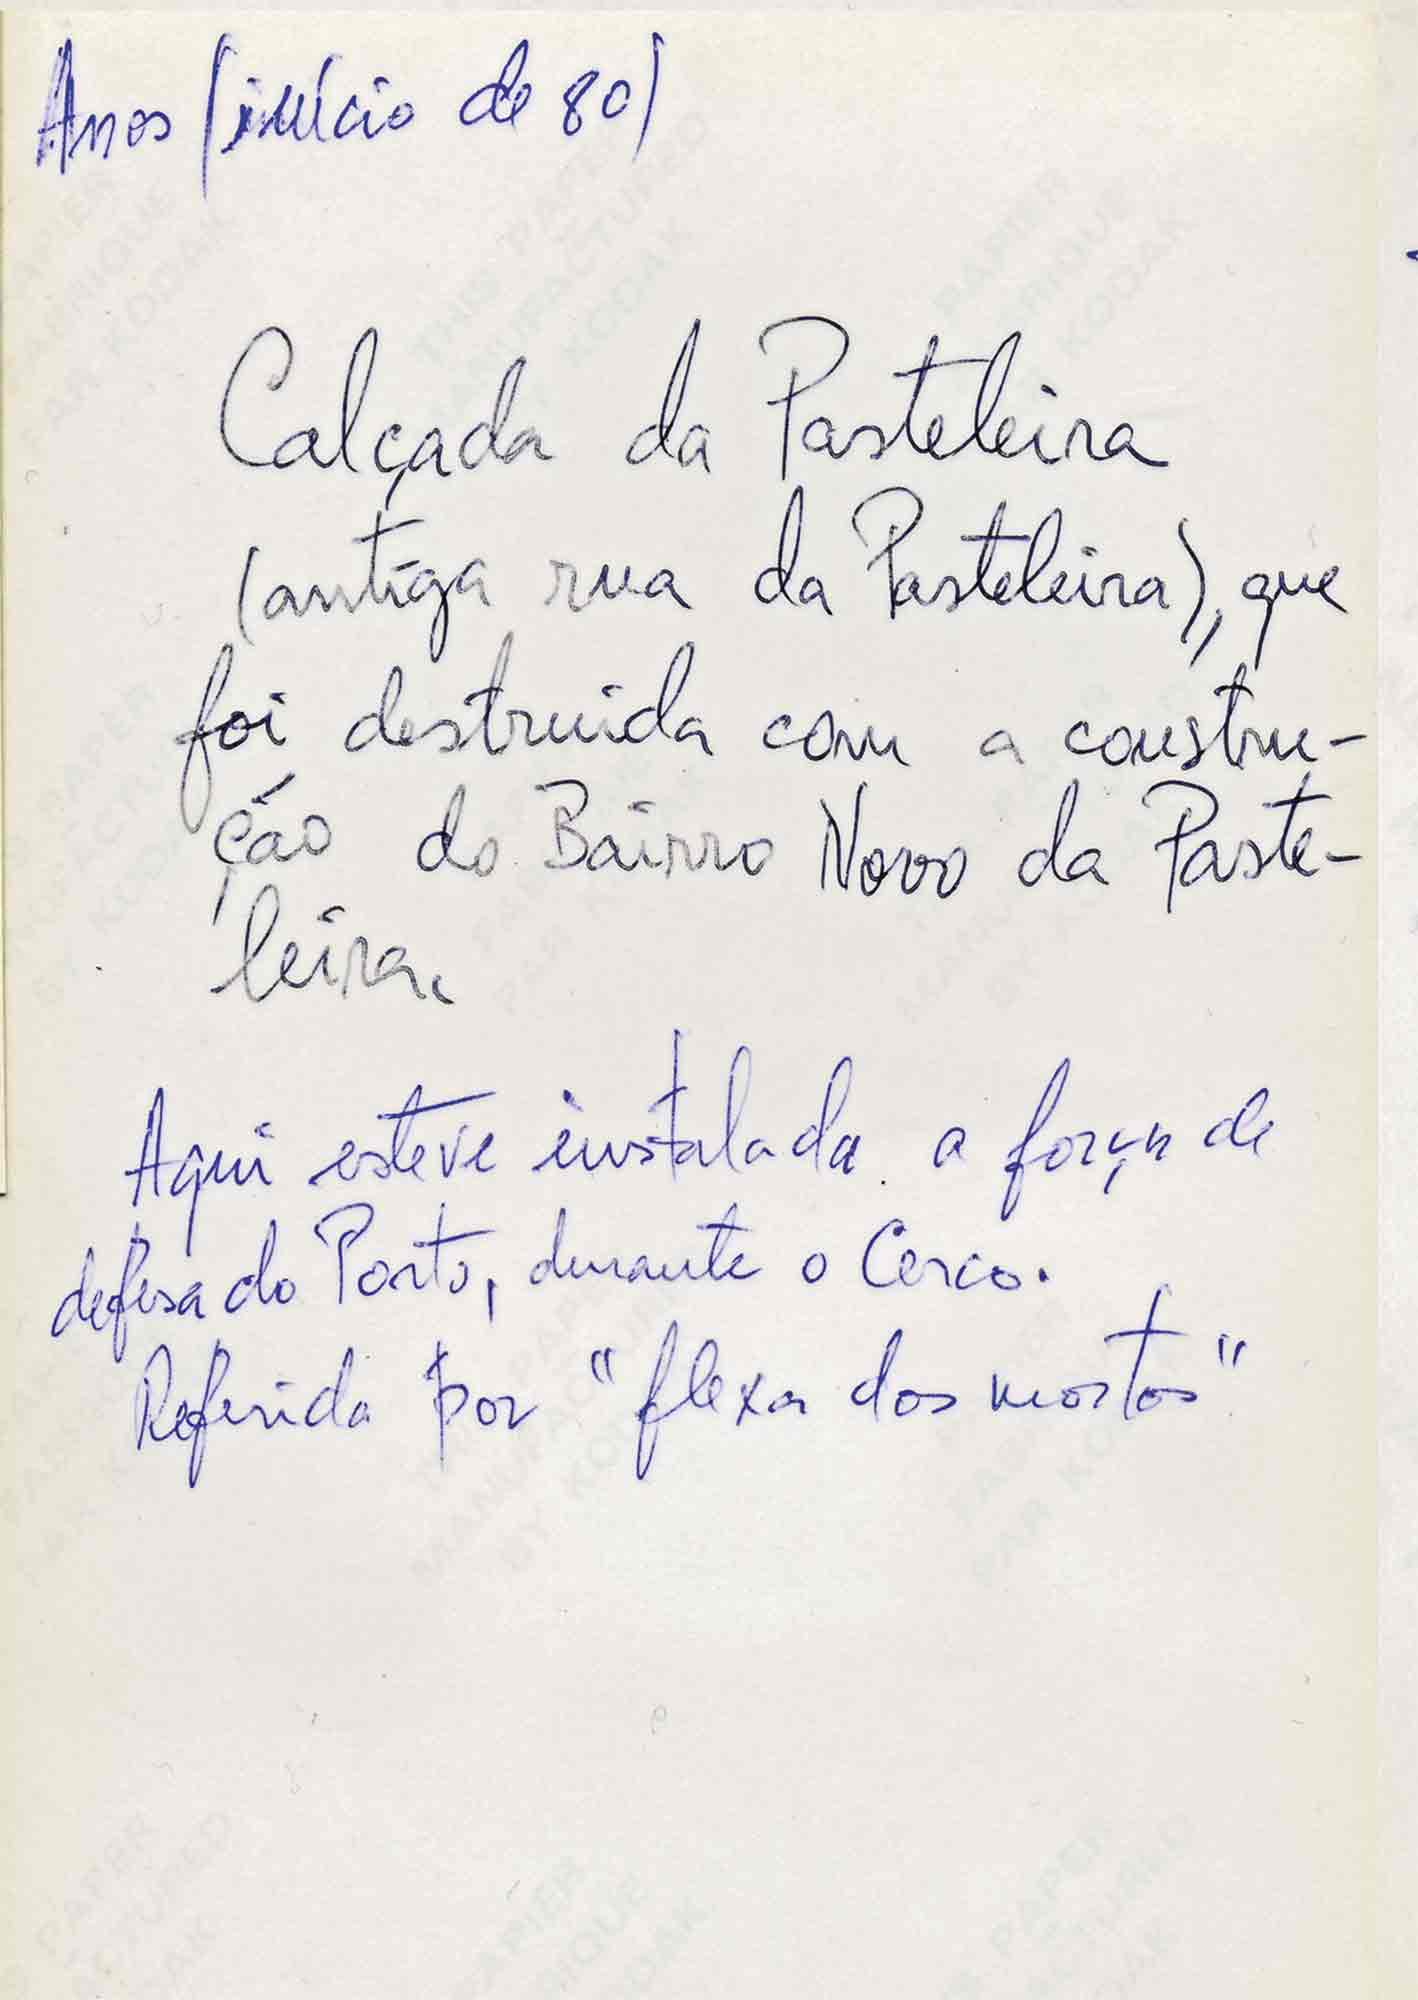 Anos (início de 80)
Calçada da Pasteleira
(antiga rua da Pasteleira), que
foi destruida com a constru-
ção do Bairro Novo da Paste-
leira.
Aqui esteve instalada a força de
defesa do Porto, durante o Cerco.
Referida por "flexa dos mortos"
THIS PAPER
MANUFACTURED
BY KODAK
PAPIER
FABRIQUE
PAR KODAK